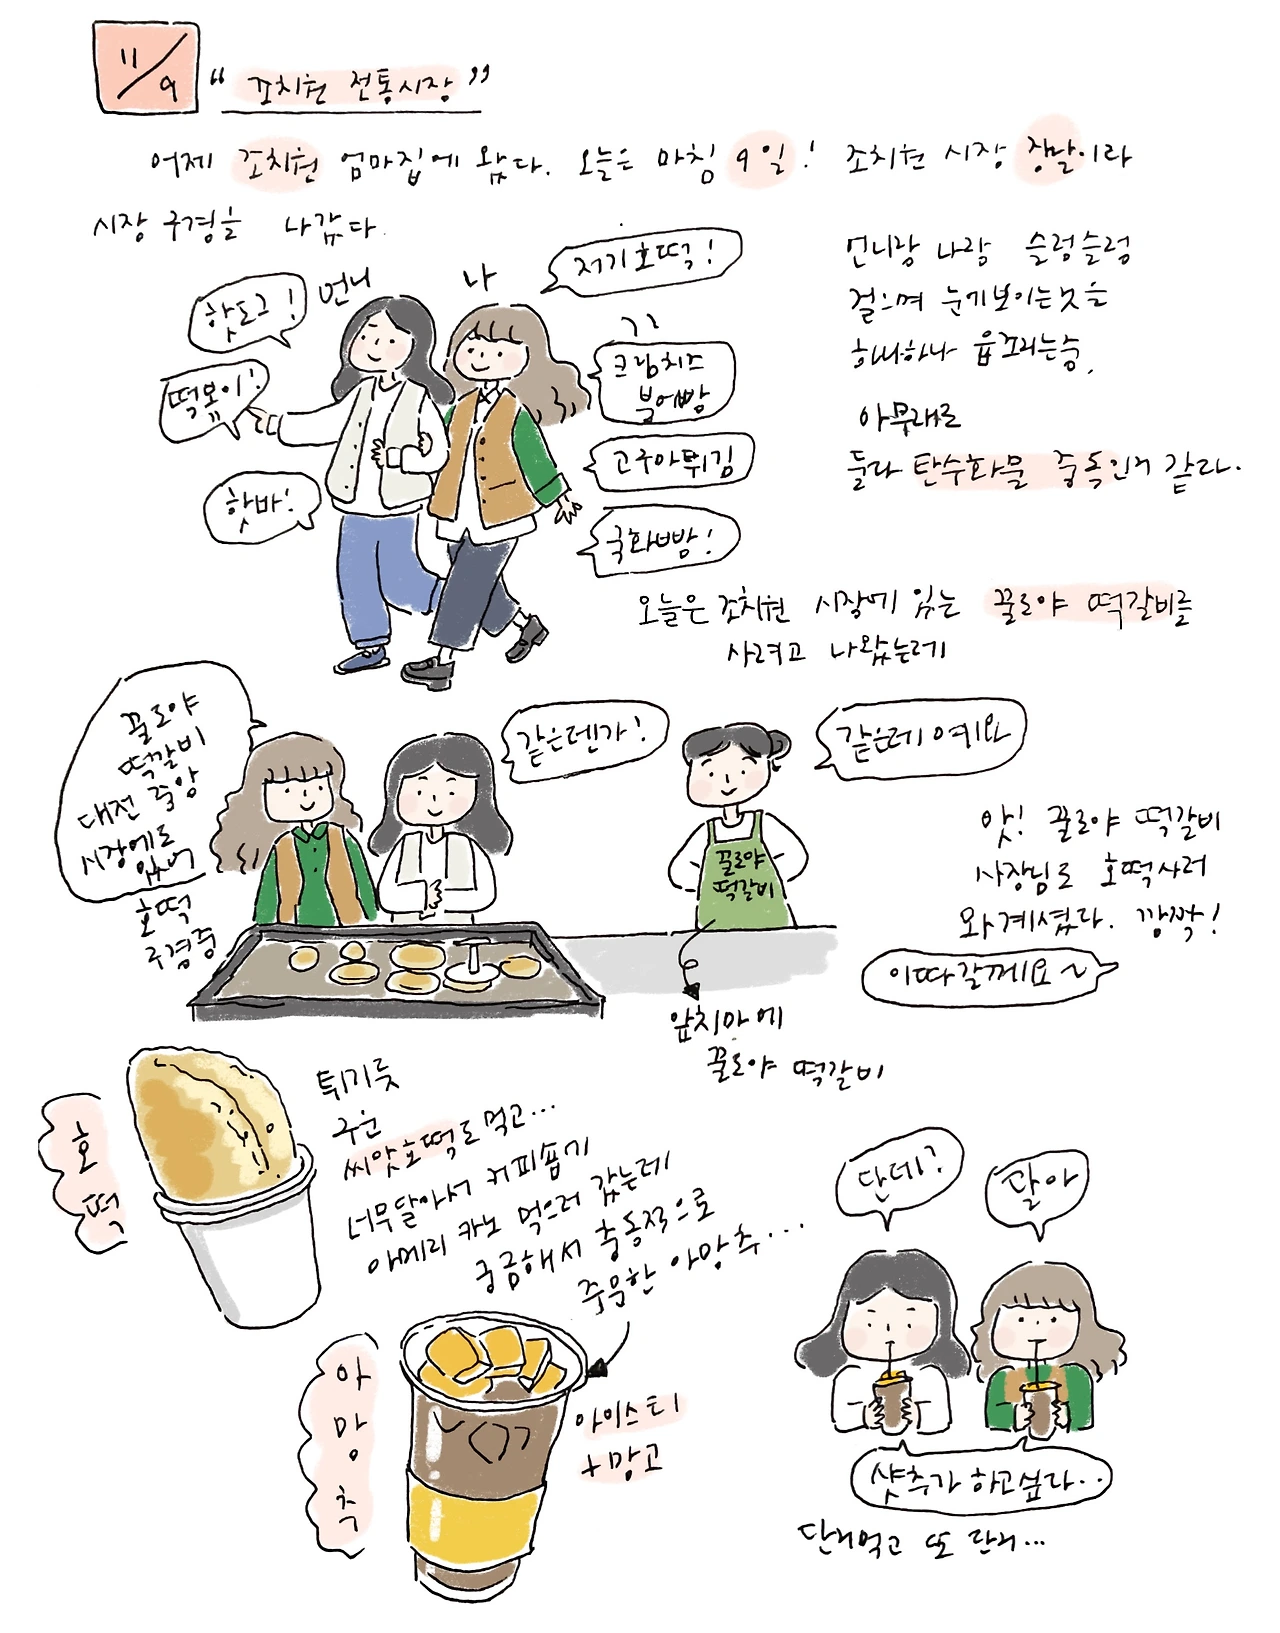 11/9 “조치원 전통시장”
어제 조치원 엄마집에 왔다. 오늘은 마침 9일! 조치원 시장 장날이라
시장 구경을 나갔다.
언니
나
핫도그!
떡볶이!
핫바!
저기 호떡!
ㄱㄱ
크림치즈
붕어빵
고구마튀김
국화빵!
언니랑 나랑 슬렁슬렁
걸으며 눈에 보이는 것을
하나하나 읊조리는중.
아무래도
둘다 탄수화물 중독인거 같다.
오늘은 조치원 시장에 있는 꿀로야 떡갈비를
사려고 나왔는데
꿀로야
떡갈비
대전 중앙
시장에도
있네
호떡
구경중
같은덴가!
같은데예요
꿀로야
떡갈비
앞치마에
꿀로야 떡갈비
앗! 꿀로야 떡갈비
사장님도 호떡사러
와계셨다. 깜짝!
이따갈께요~
호떡
튀기듯
구운
씨앗호떡도 먹고...
너무달아서 커피숍가
아메리카노 먹으러 갔는데
궁금해서 충동적으로
주문한 아망추...
아망추
아이스티
+망고
단데?
달아
샷추가 하고싶다..
단거먹고 또 단거...